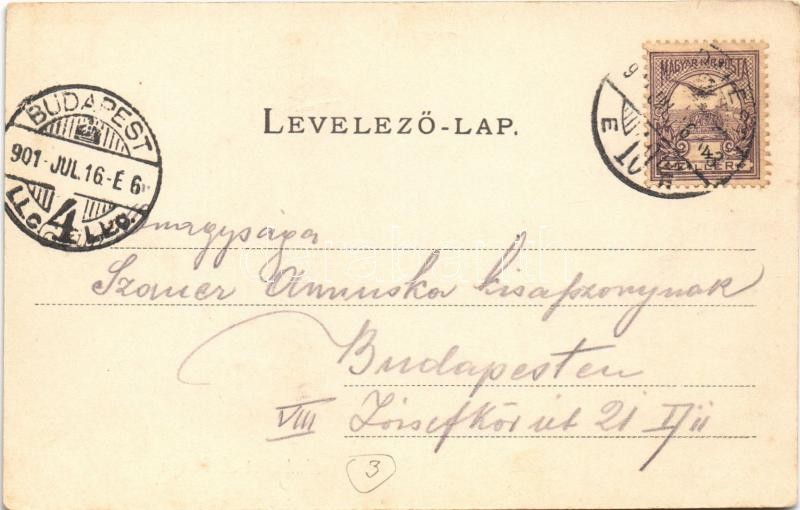 LEVELEZŐ-LAP.
MAGYAR KIR. POSTA
FILLÉR
BUDAPEST
901-JUL.16-É 6
4
Őnagysága
Szauer Annuska kisasszonynak
Budapesten
VIII Józsefkörút 21
3